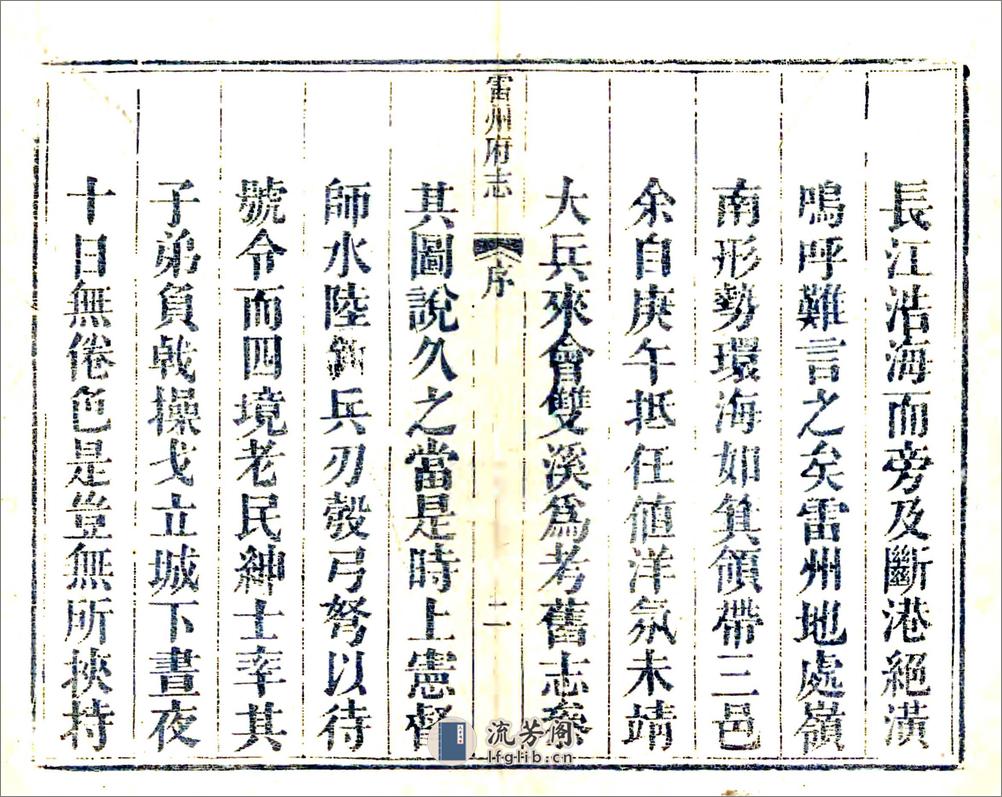 長江浩海而旁及斷港絕潢
嗚呼難言之矣雷州地處嶺
南形勢環海如箕領帶三邑
余自庚午抵任値洋氛未靖
大兵來會雙溪爲考舊志叅
雷州府志
序
二
其圖說久之當是時上憲督
師水陸衝兵刃彀弓弩以待
號令而四境老民紳士率其
子弟負戟操戈立城下晝夜
十日無倦色是豈無所挾持
流芳阁
lfglib.cn